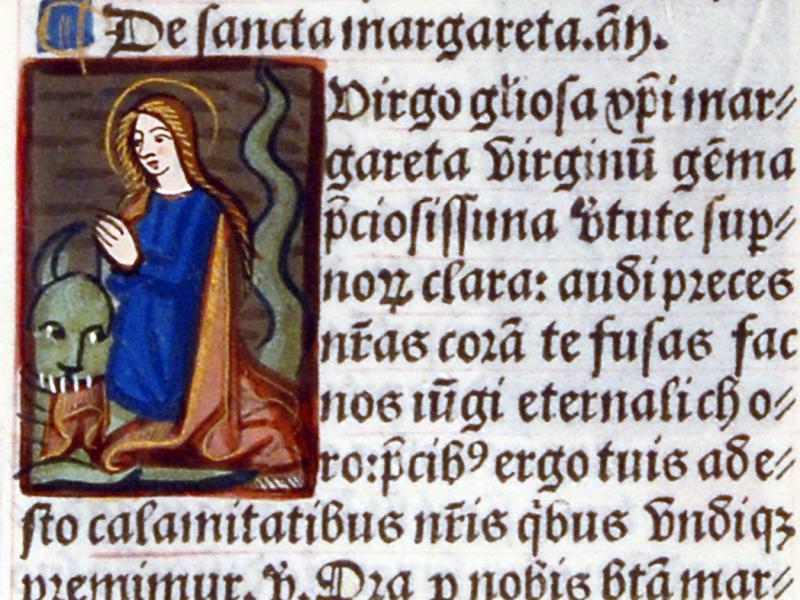 De sancta margareta. añ.
Virgo gl̃iosa xp̃i mar⸗
gareta v̄irginū gēma
p̄ciosissima v̓tute sup⸗
noꝝ clara: audi preces
nr̃as corā te fusas fac
nos iūgi eternali cho⸗
ro: p̄cibꝰ ergo tuis ade⸗
sto calamitatibus nr̃is q̇bus v̄ndiqꝫ
premimur. v̓. Ora p nobis btā mar⸗